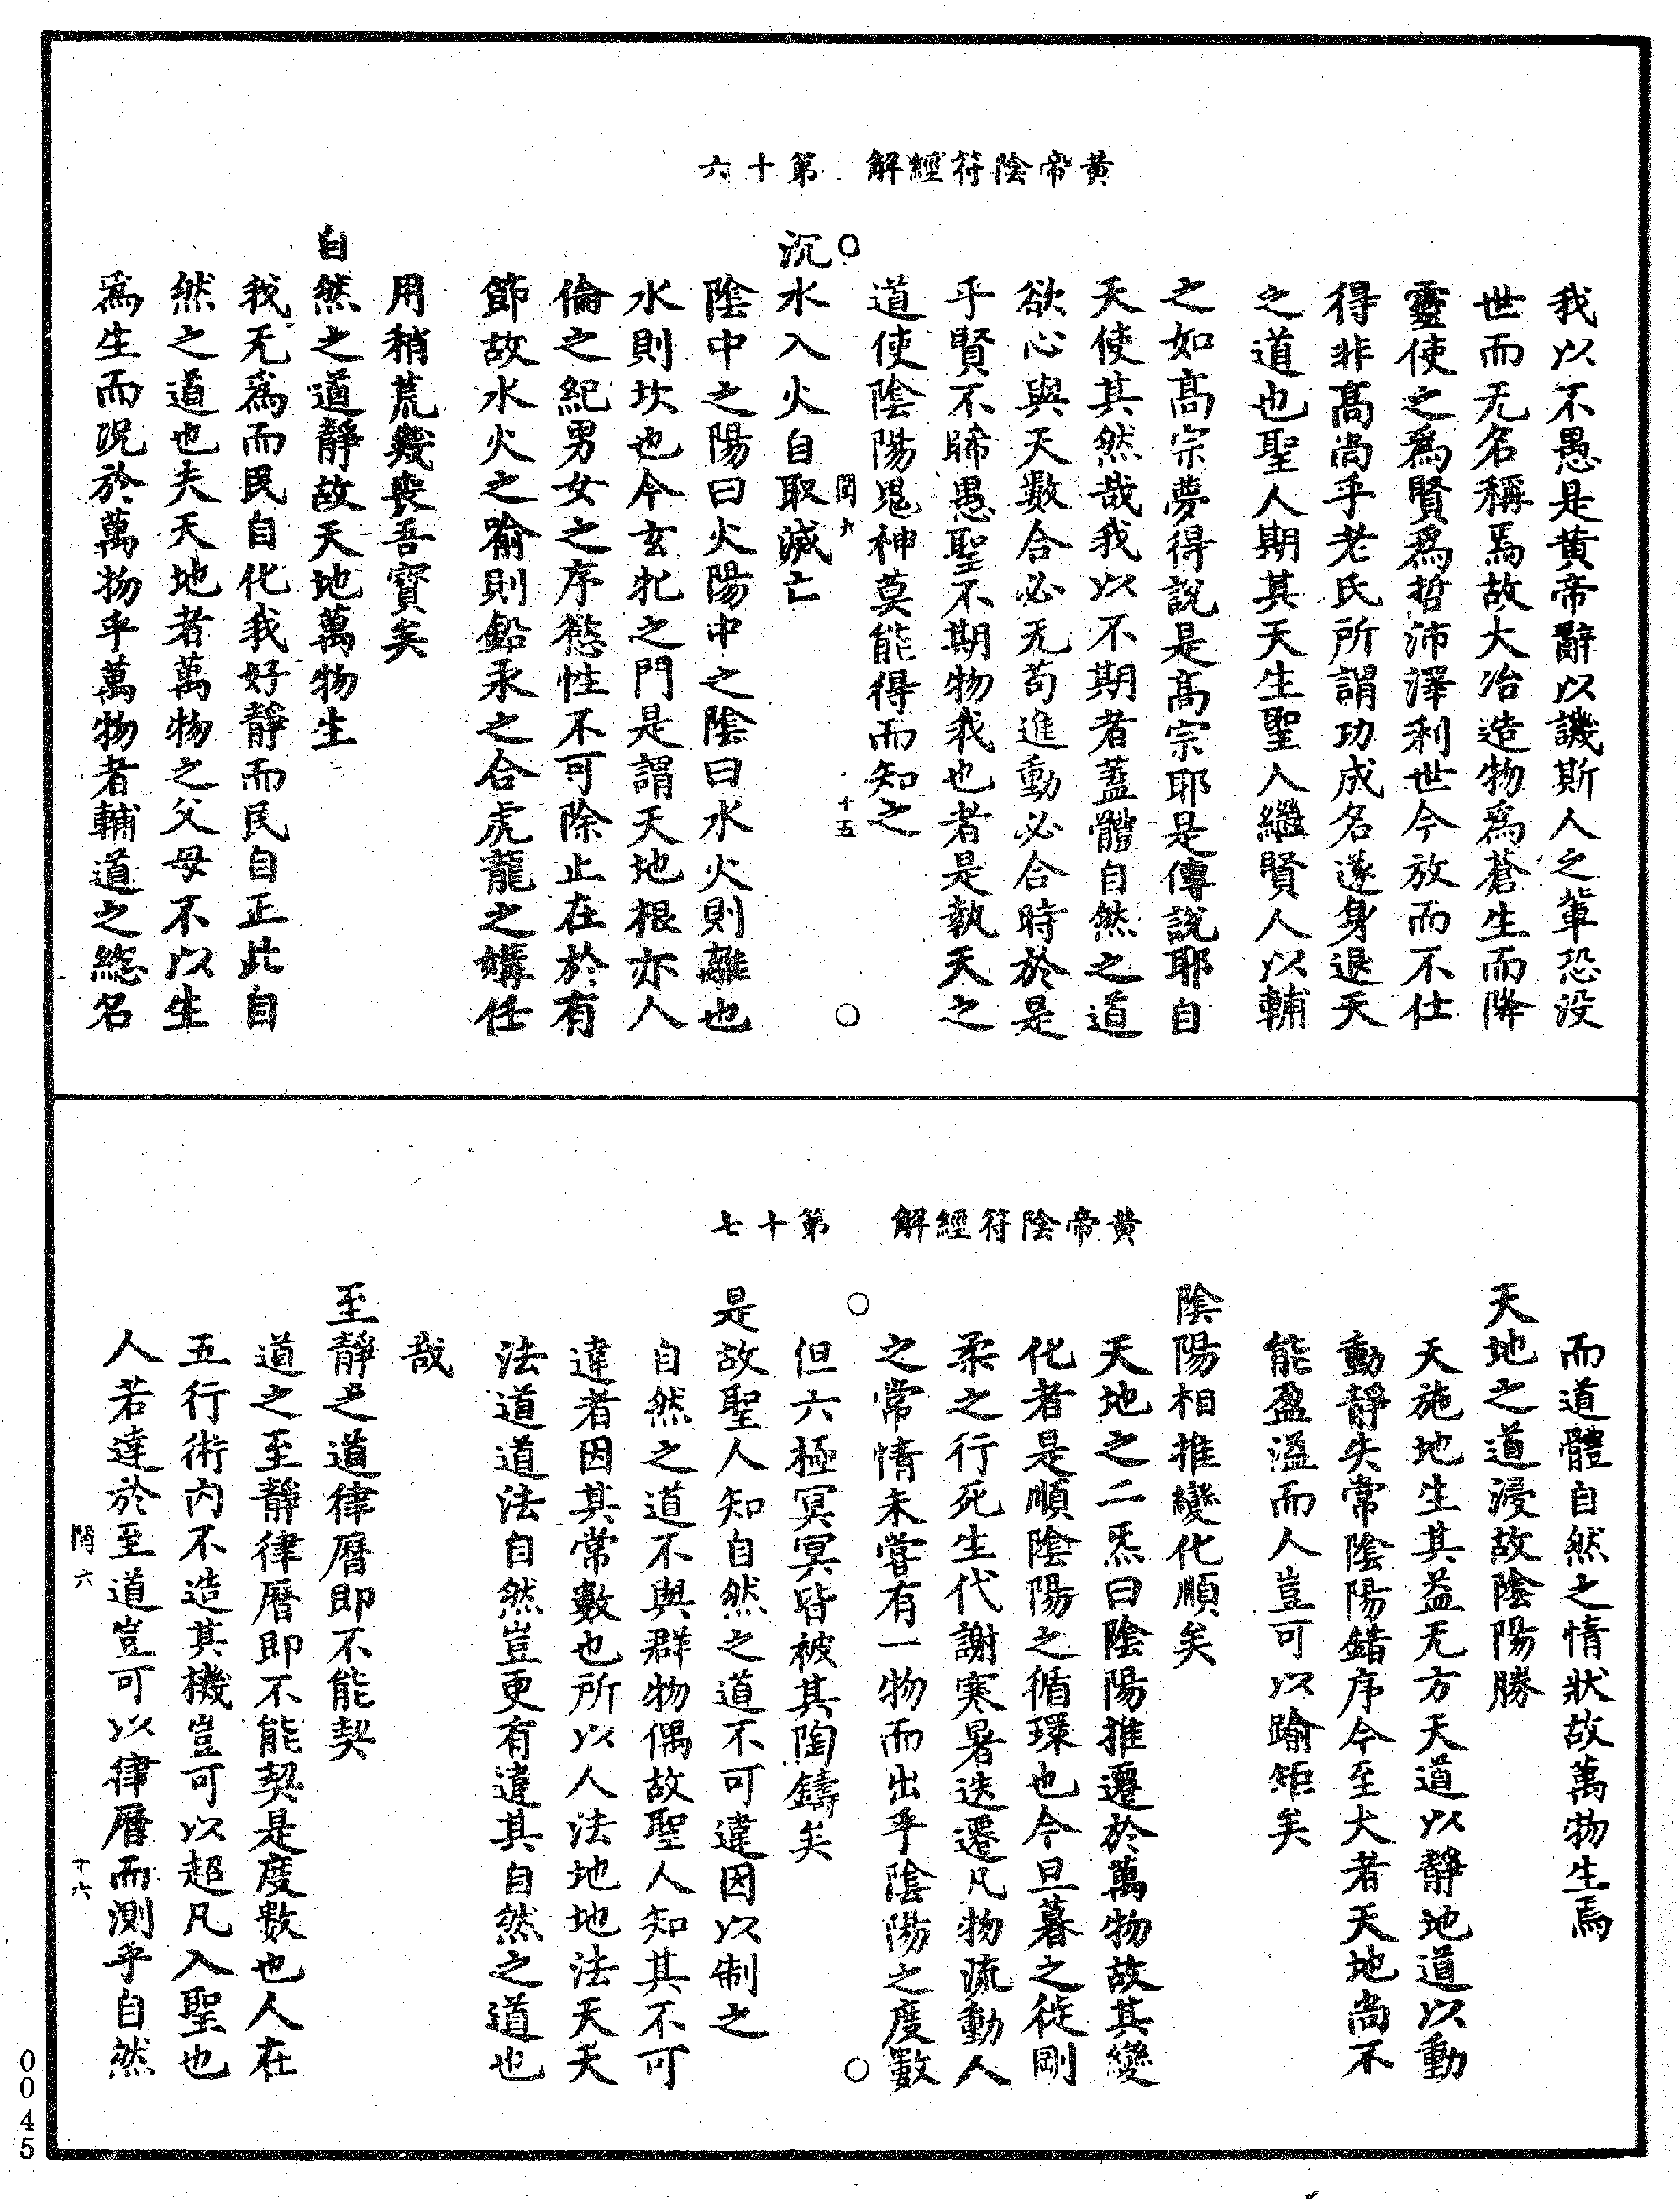 黃帝陰符經解　第十六
我以不愚是黃帝辭以譏斯人之輩恐没
世而无名稱焉故大冶造物爲蒼生而降
靈使之爲賢爲哲沛澤利世今放而不仕
得非髙尚乎老氏所謂功成名遂身退天
之道也聖人期其天生聖人繼賢人以輔
之如髙宗夢得說是髙宗耶是傳說耶自
天使其然哉我以不期者蓋體自然之道
欲心與天數合必无苟進動必合時於是
乎賢不睎愚聖不期物我也者是執天之
道使陰陽鬼神莫能得而知之
○　閏六　十五　○
沉水入火自取滅亡
陰中之陽曰火陽中之陰曰水火則離也
水則坎也今玄牝之門是謂天地根亦人
倫之紀男女之序慾性不可除止在於有
節故水火之喻則鉛汞之合虎龍之媾任
用稍荒幾喪吾寳矣
自然之道靜故天地萬物生
我无爲而民自化我好靜而民自正此自
然之道也夫天地者萬物之父母不以生
爲生而况於萬物乎萬物者輔道之總名
黃帝陰符經解　第十七
而道體自然之情狀故萬物生焉
天地之道浸故陰陽勝
天施地生其益无方天道以靜地道以動
動靜失常陰陽錯序今至大者天地尚不
能盈溢而人豈可以踰矩矣
陰陽相推變化順矣
天地之二炁曰陰陽推遷於萬物故其變
化者是順陰陽之循環也今旦暮之徙剛
柔之行死生代謝寒暑迭遷凡物流動人
之常情未嘗有一物而出乎陰陽之度數
○　○
但六極冥冥皆被其陶鑄矣
是故聖人知自然之道不可違因以制之
自然之道不與群物偶故聖人知其不可
違者因其常數也所以人法地地法天天
法道道法自然豈更有違其自然之道也
哉
至靜之道律曆即不能契
道之至靜律曆即不能契是度數也人在
五行術内不造其機豈可以超凡入聖也
人若達於至道豈可以律曆而測乎自然
閏六　十六
0045